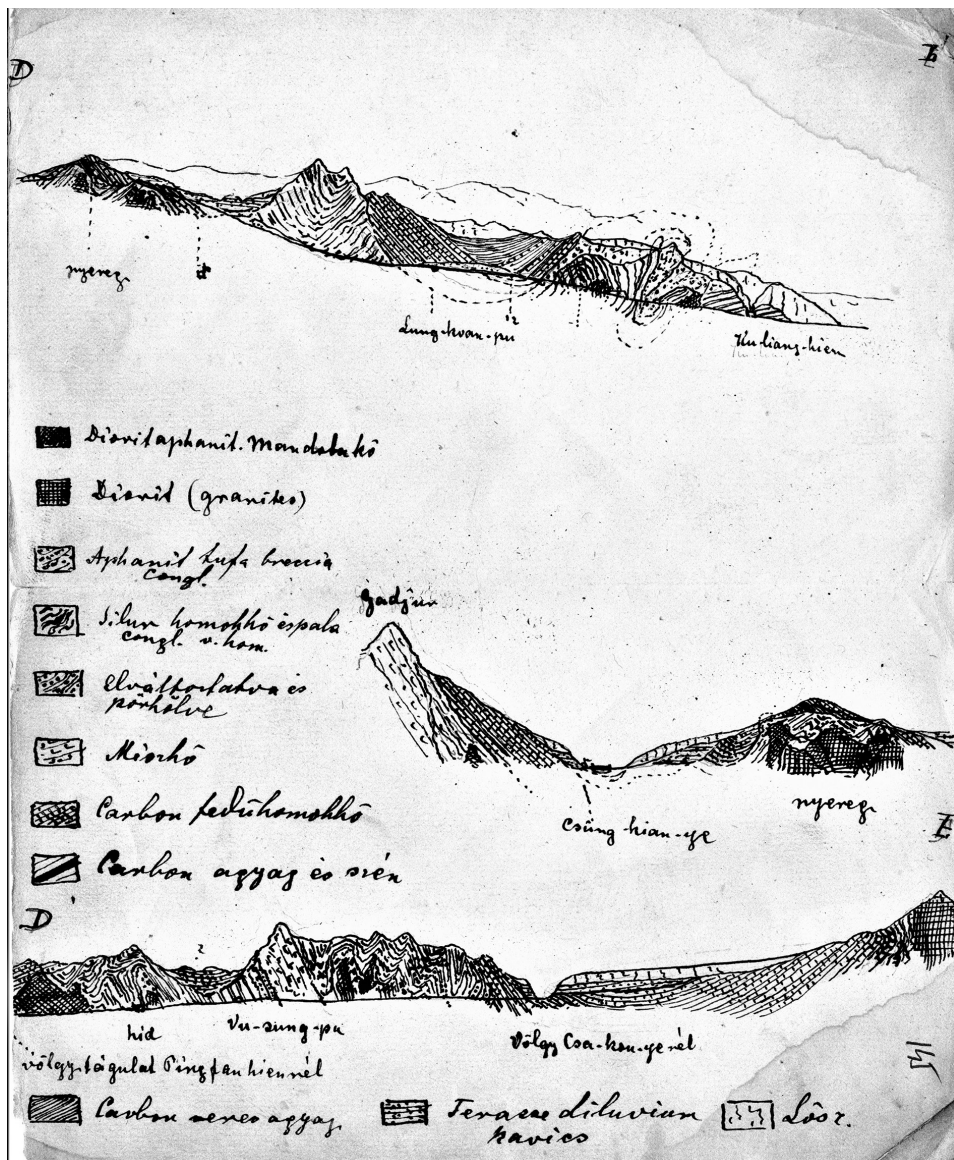 D
E'
nyereg
Lung-kvan-pu
?
Ku-liang-hien
Dioritaphanit. Mandolakő
Diorit (granitos)
Aphanit tufa breccia
congl.
Silur homokkő és pala
congl. v. hom.
elváltoztatva és
pörkölve
Mészkő
Carbon fedühomokkő
Carbon agyag és szén
Gadjur
Csüng-hian-ye
nyereg
E
D'
?
híd
Vu-sung-pu
Völgy Csa-kou-yenél
völgy tágulat Pingfanhiennél
Carbon veres agyag
Terasse diluvium
kavics
Lősz.